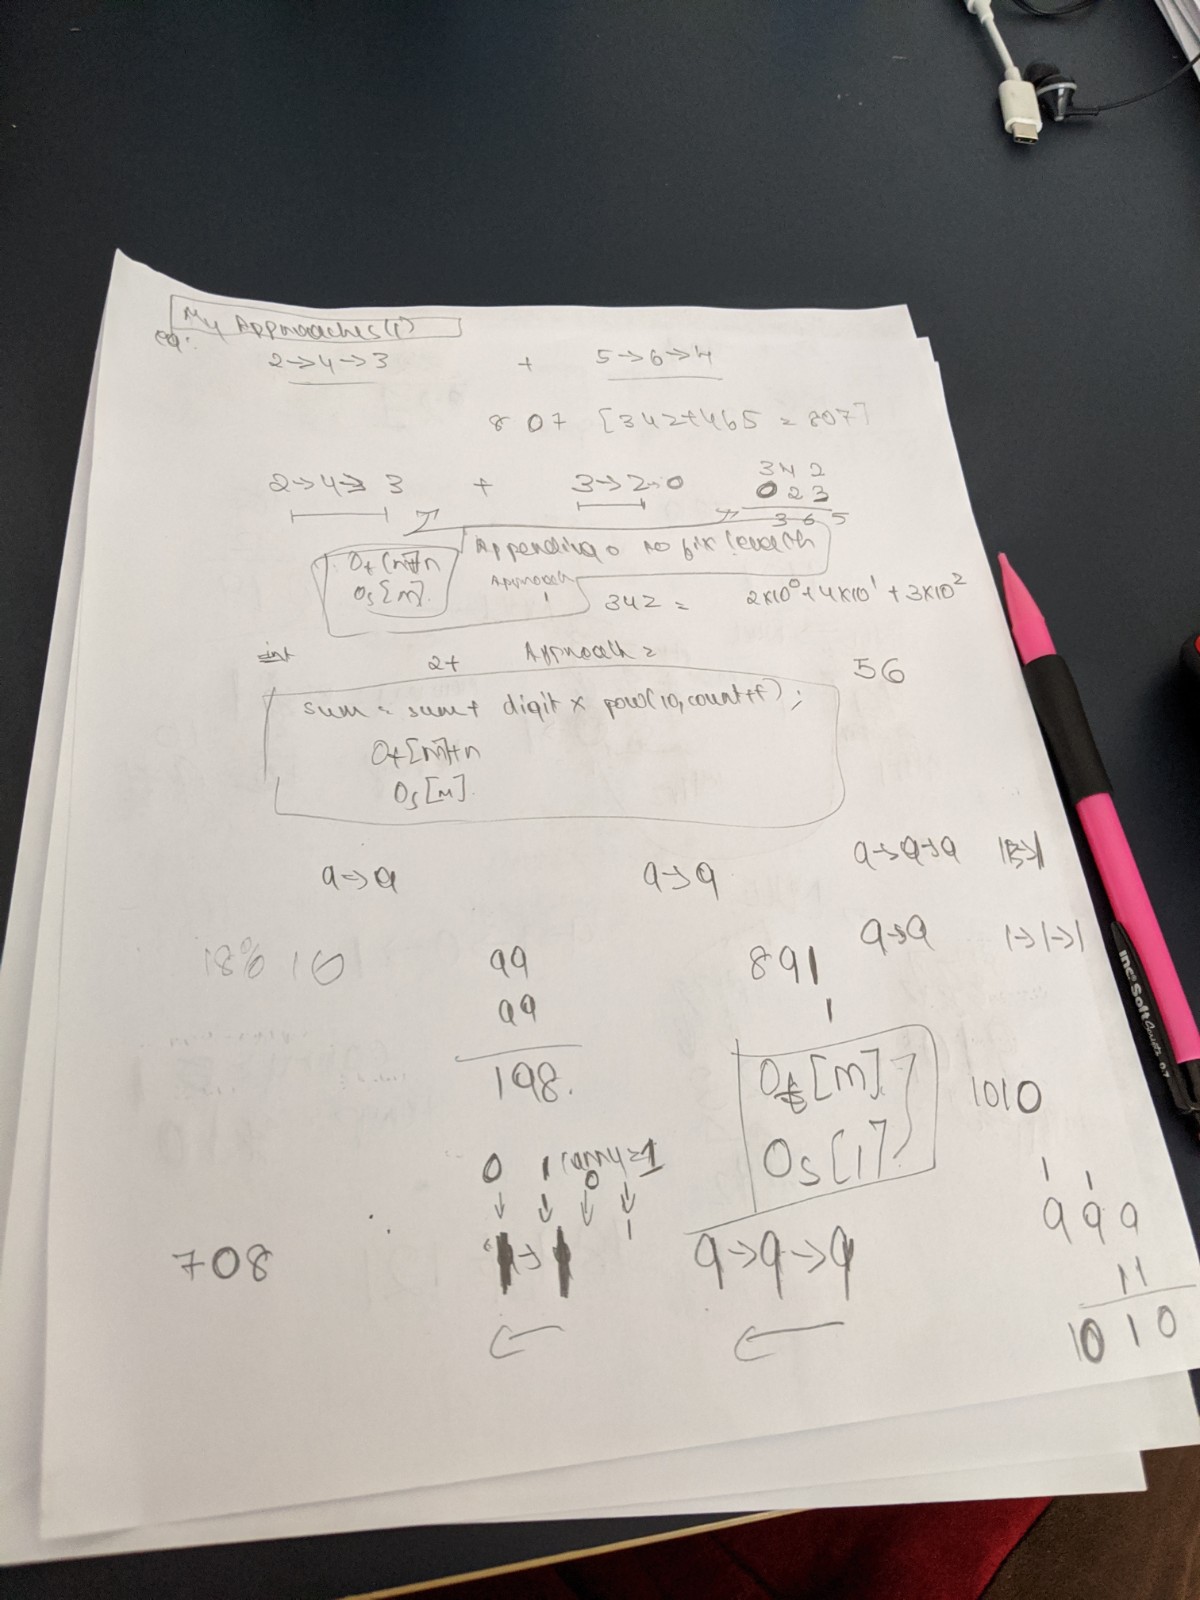 My Approaches(1)
eg:
2→4→3 + 5→6→4
8 07 [342+465 = 807]
2→4→3 + 3→2→0
342
023
365
Appending 0 to fix length
Ot[m]+n
Os[m].
Approach
1
342 = 2×10⁰+4×10¹+3×10²
int
2+ Approach 2
56
sum = sum + digit × pow(10,count++);
Ot[m]+n
Os[m].
9→9 9→9 9→9→9 1→1
9→9 1→1→1
18% 10
99
99
198.
891
1
Ot[m]
Os[1]
1010
0 1 carry=1
0
1
708
1→1
9→9→9
1 1
999
11
1010
inc. Soft Comforts 0.7